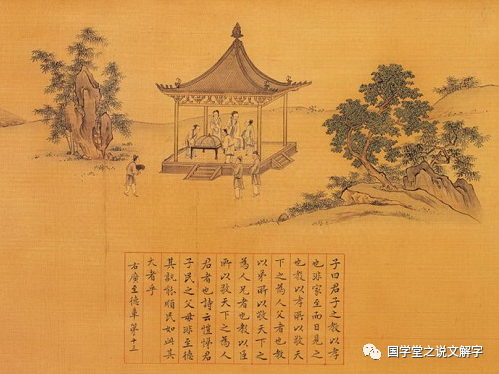 子曰君子之教以孝
也非家至而日見之
也教以孝所以敬天
下之為人父者也教
以弟所以敬天下之
為人兄者也教以臣
所以敬天下之為人
君者也詩云愷悌君
子民之父母非至德
其孰能順民如此其
大者乎
右廣至德章第十三
国学堂之说文解字